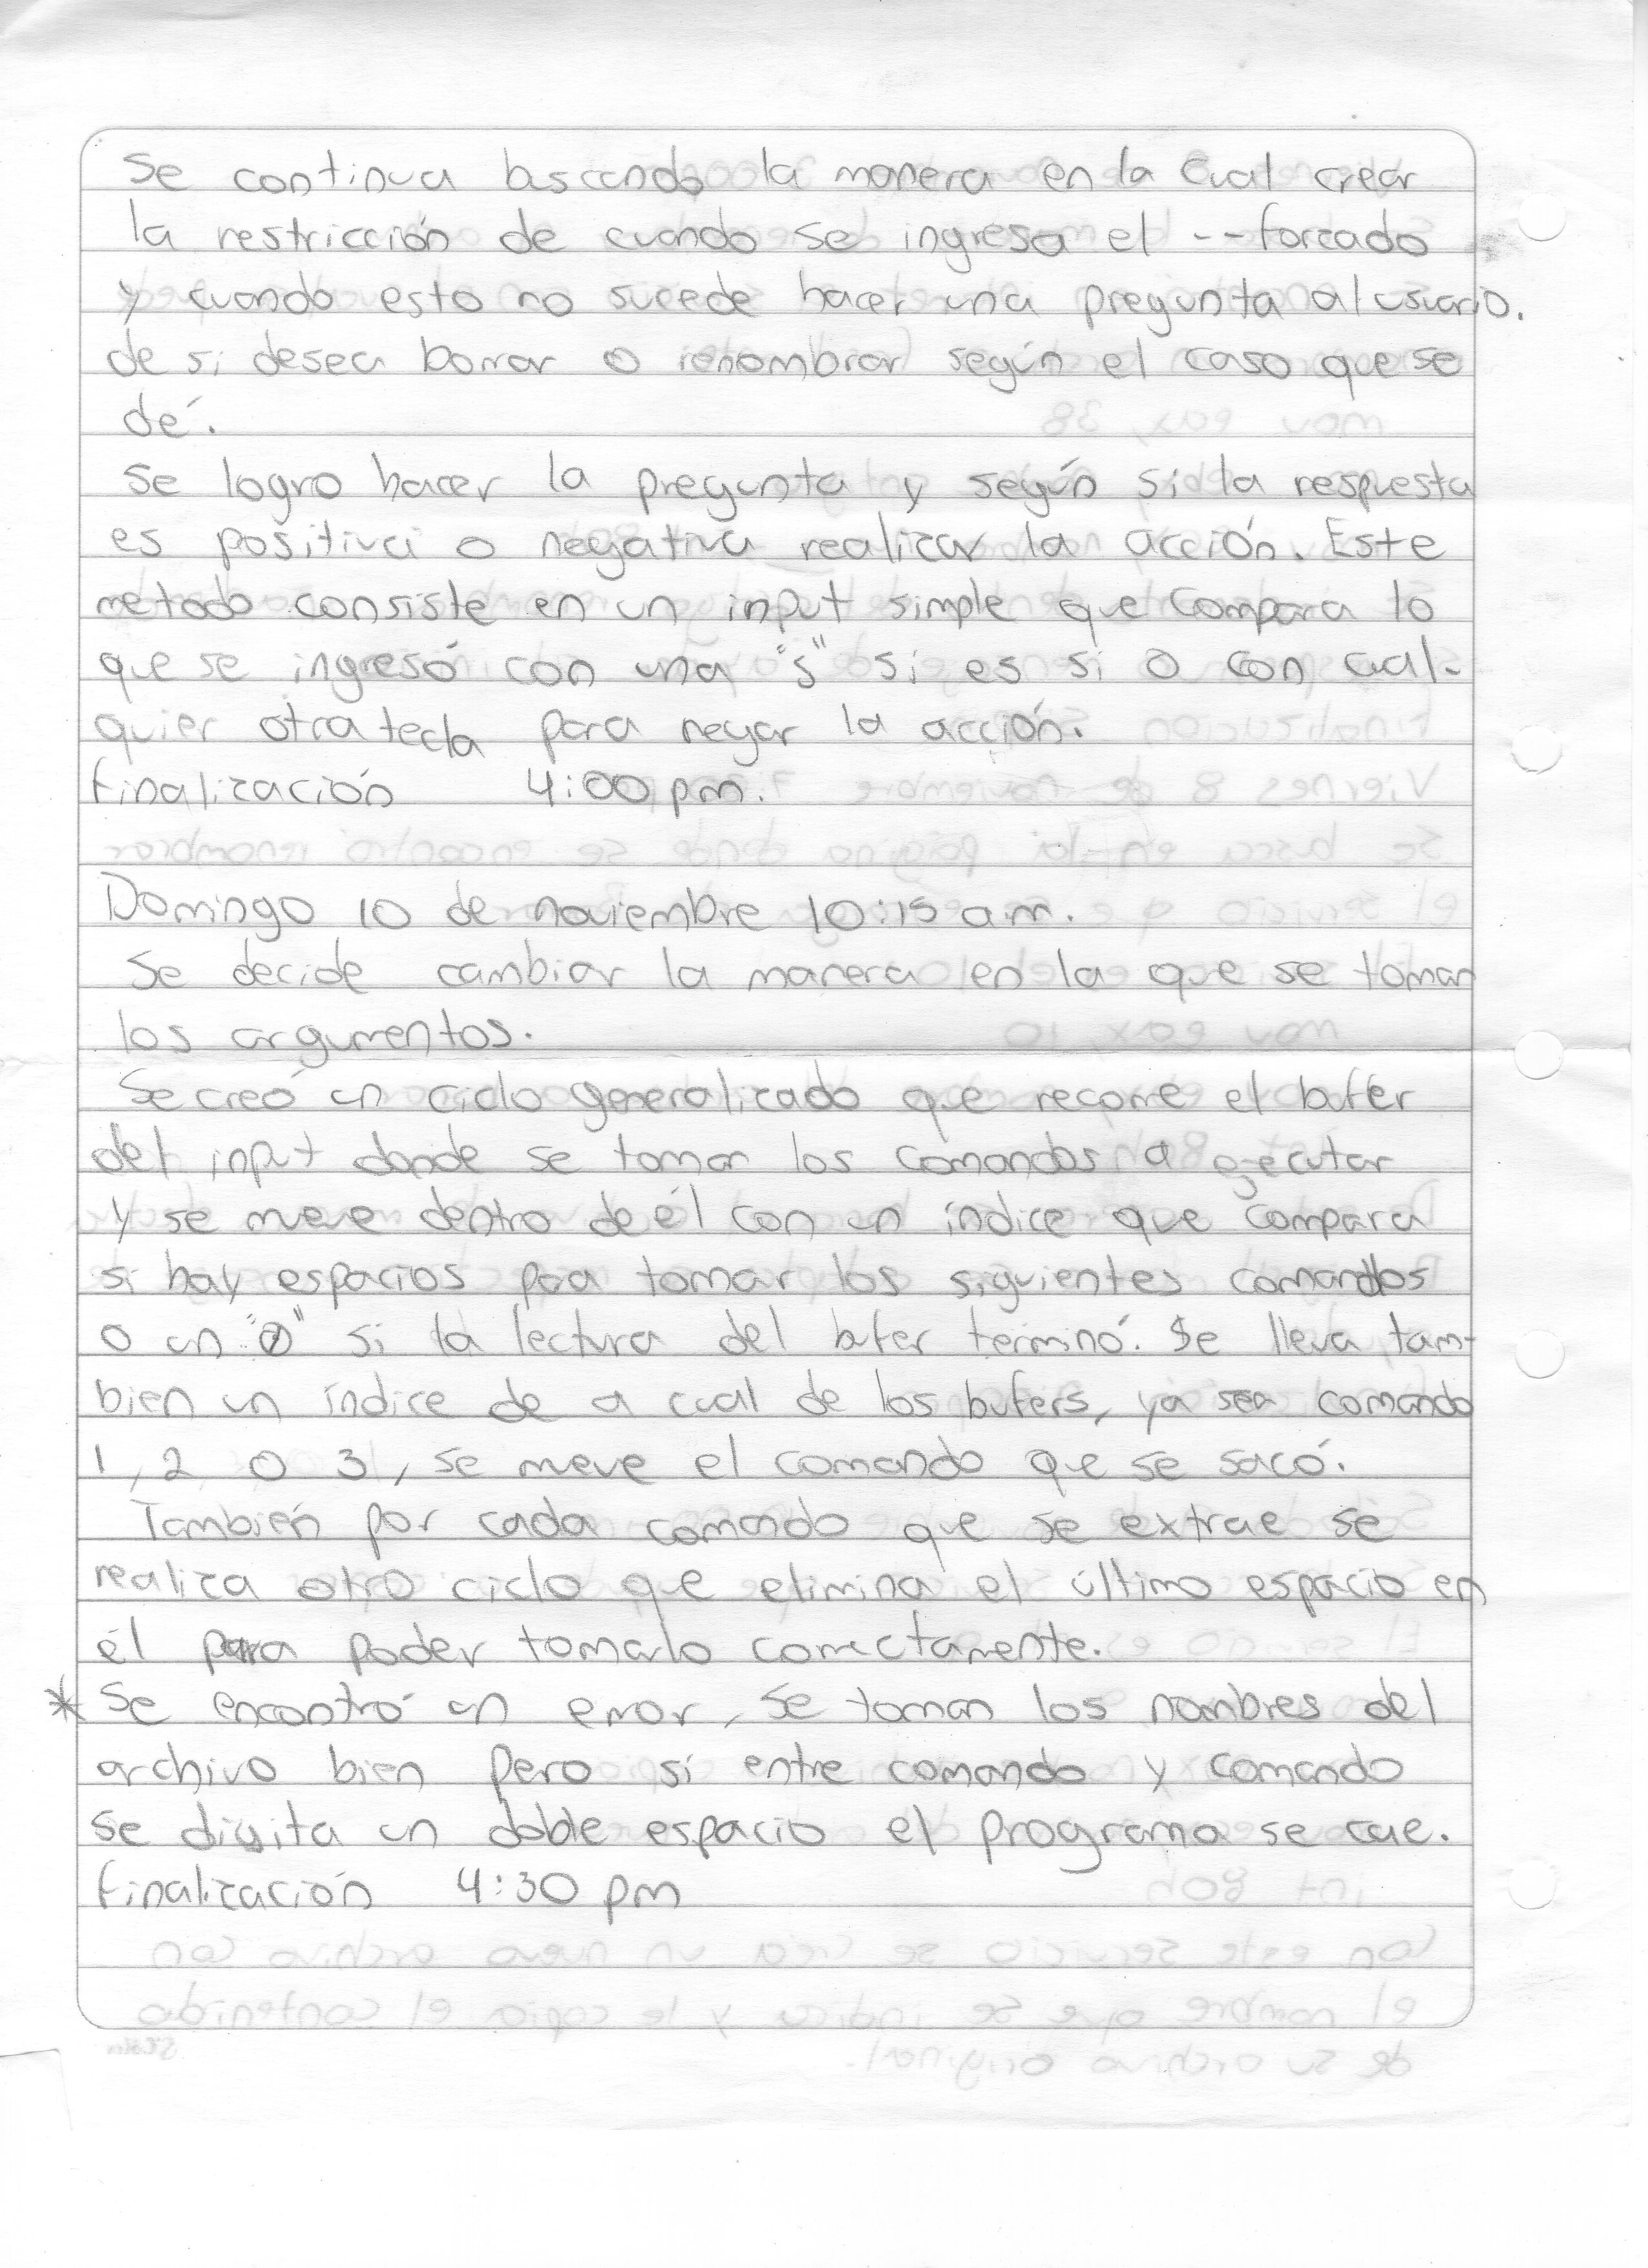 Se continua buscando la manera en la cual crear
la restricción de cuando se ingresa el --forzado
y cuando esto no sucede hacer una pregunta al usuario.
de si desea borrar o renombrar según el caso que se
dé.
Se logro hacer la pregunta y según si la respuesta
es positiva o negativa realizar la acción. Este
metodo consiste en un input simple que compara lo
que se ingresó con una "s" si es si o con cual-
quier otra tecla para negar la acción.
Finalización 4:00 pm.
Domingo 10 de noviembre 10:15 a.m.
Se decide cambiar la manera en la que se toman
los argumentos.
Se creó un ciclo generalizado que recorre el bufer
del input donde se toman los comandos a ejecutar
y se mueve dentro de él con un índice que compara
si hay espacios paa tomar los siguientes comandos
o un "0" si la lectura del bufer terminó. Se lleva tam-
bien un índice de a cual de los bufers, ya sea comando
1, 2 o 3, se mueve el comando que se sacó.
También por cada comando que se extrae se
realiza otro ciclo que elimina el último espacio en
él para poder tomarlo correctamente.
* Se encontró un error, se toman los nombres del
archivo bien pero si entre comando y comando
se digita un doble espacio el programa se cae.
Finalización 4:30 pm